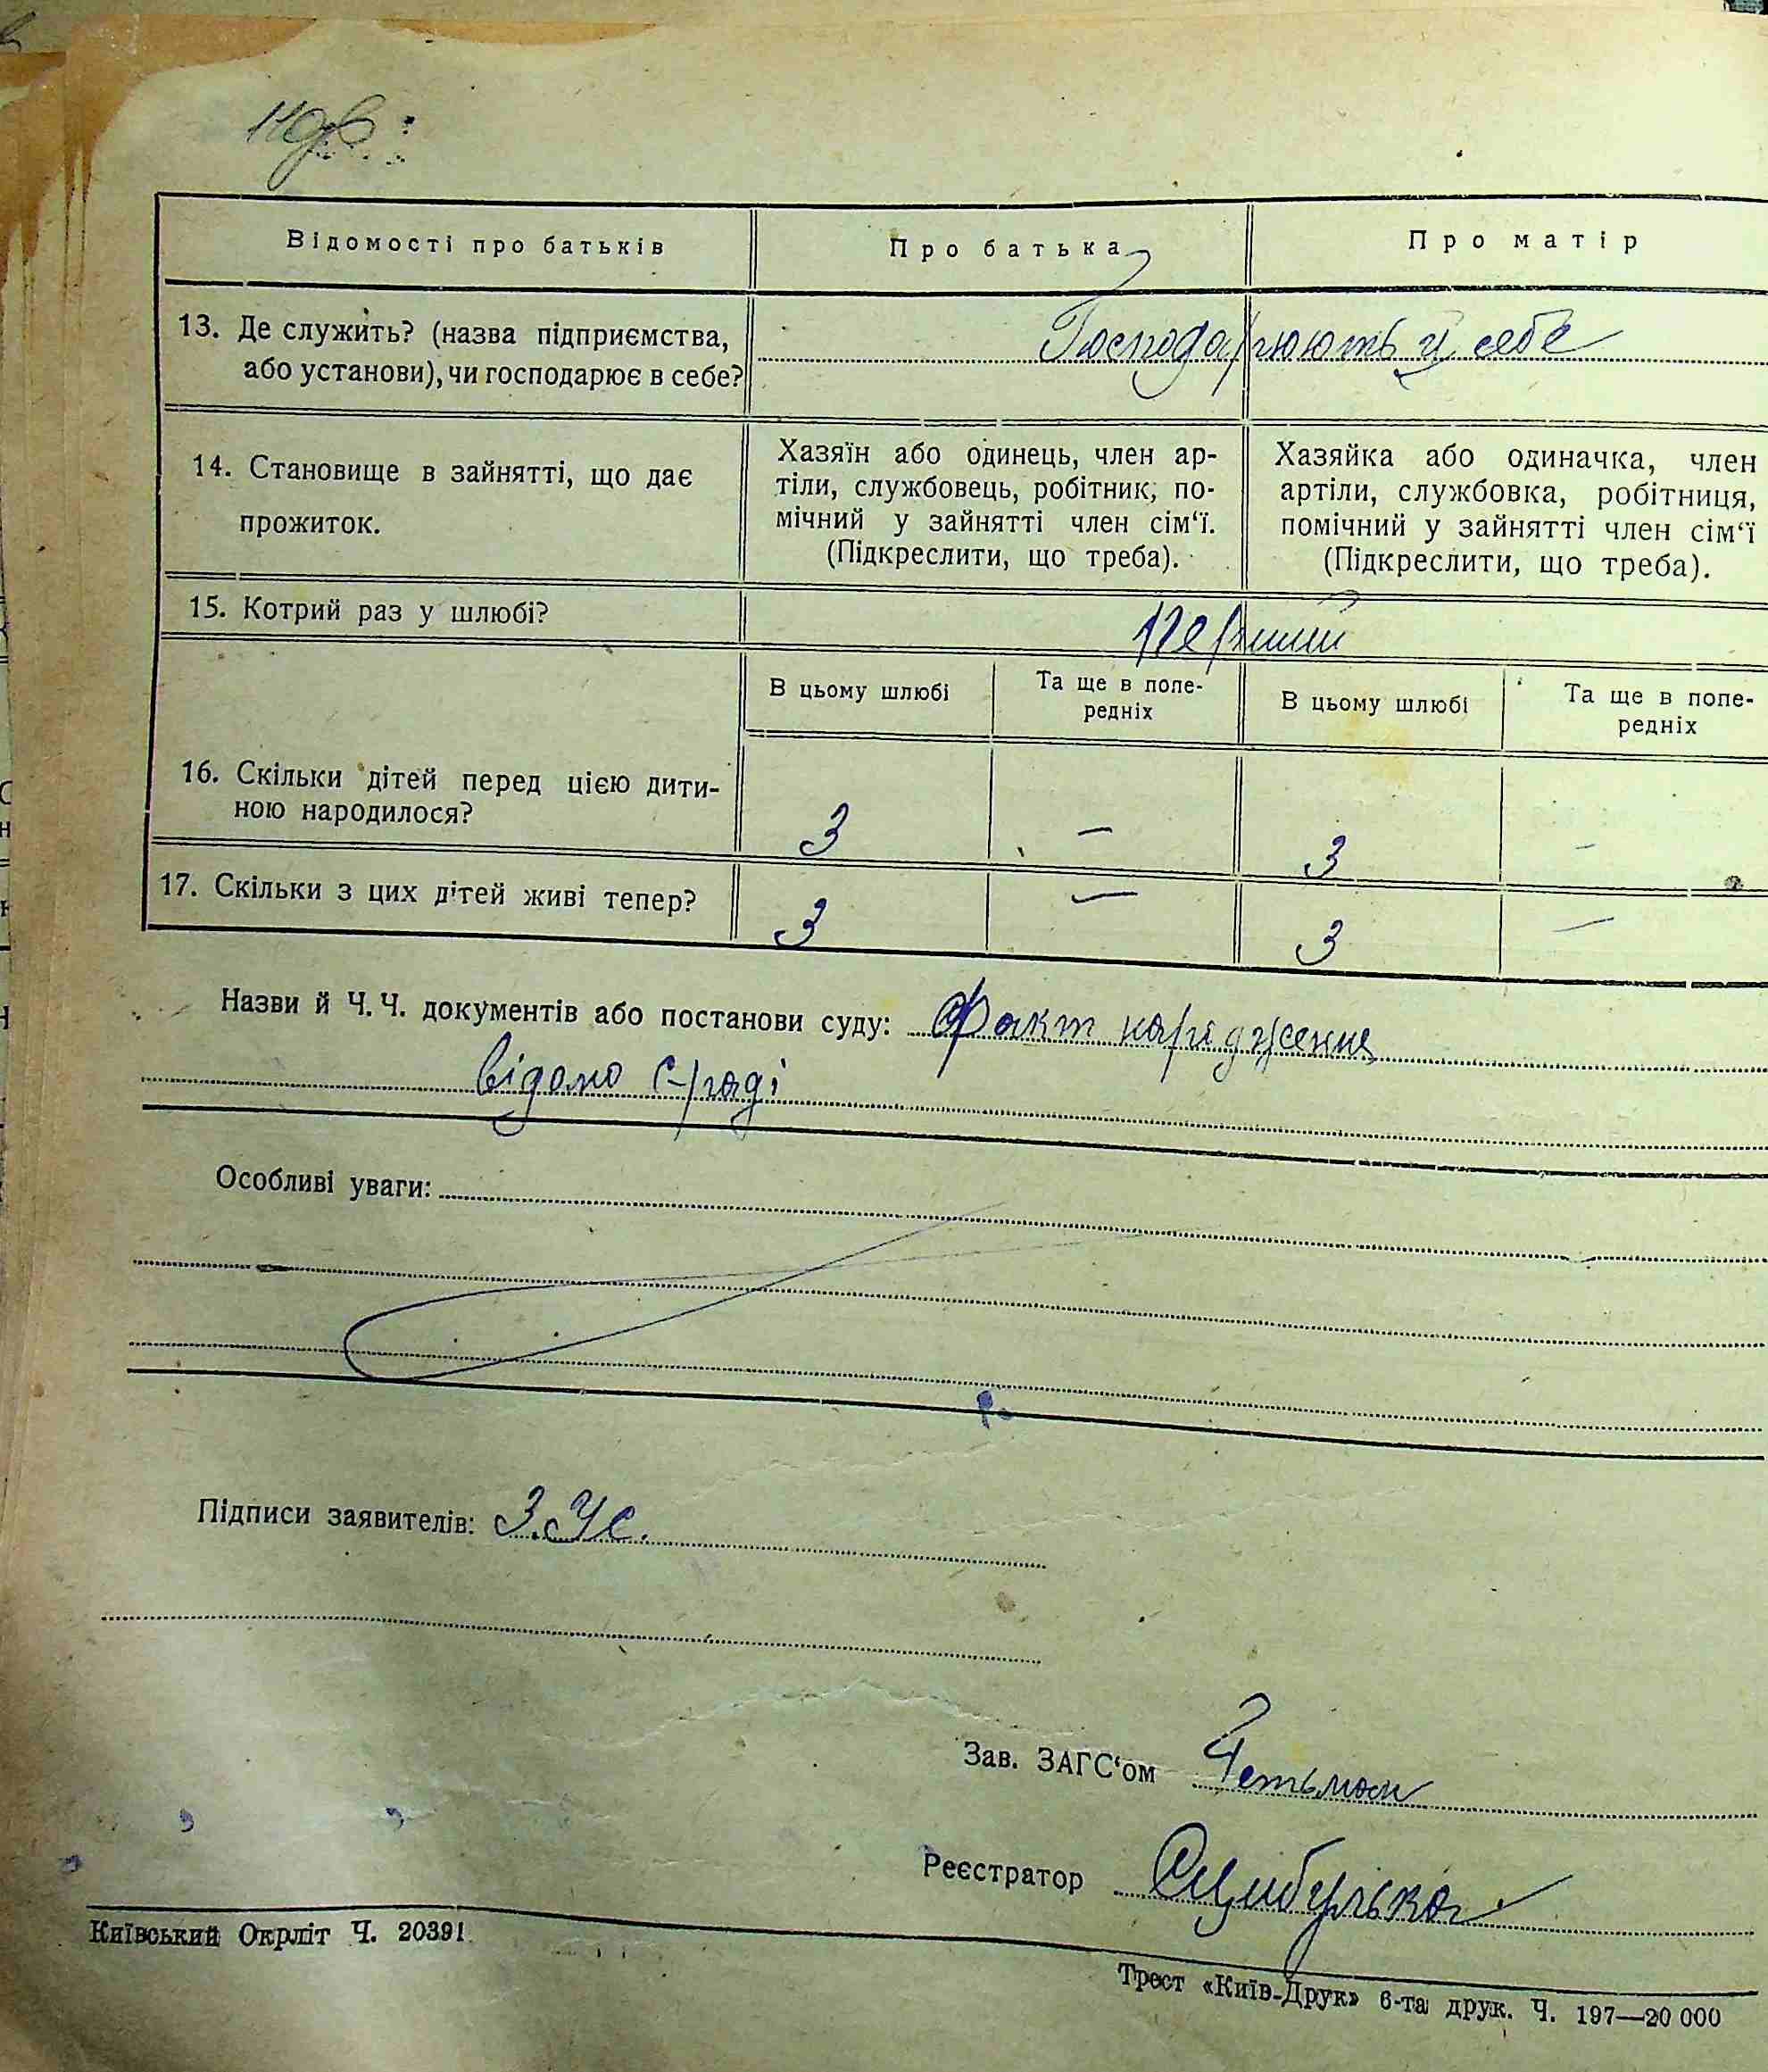 Відомості про батьків
Про батька
Про матір
13. Де служить? (назва підприємства,
або установи), чи господарює в себе?
Господарюють у себе
14. Становище в зайнятті, що дає
прожиток.
Хазяїн або одинець, член ар-
тіли, службовець, робітник, по-
мічний у зайнятті член сім‘ї.
(Підкреслити, що треба).
Хазяйка або одиначка, член
артіли, службовка, робітниця,
помічний у зайнятті член сім‘ї
(Підкреслити, що треба).
15. Котрий раз у шлюбі?
перший
В цьому шлюбі
Та ще в попе-
редніх
В цьому шлюбі
Та ще в попе-
редніх
16. Скільки дітей перед цією дити-
ною народилося?
3 — 3 —
17. Скільки з цих дітей живі тепер?
3 — 3 —
Назви й Ч. Ч. документів або постанови суду: Факт народження
відомо с-раді
Особливі уваги:
Підписи заявителів: З. Ус.
Зав. ЗАГС‘ом Гетьман
Реєстратор Сцибулька
Київський Окрліт Ч. 20391.
Трест «Київ-Друк» 6-та друк. Ч. 197—20 000